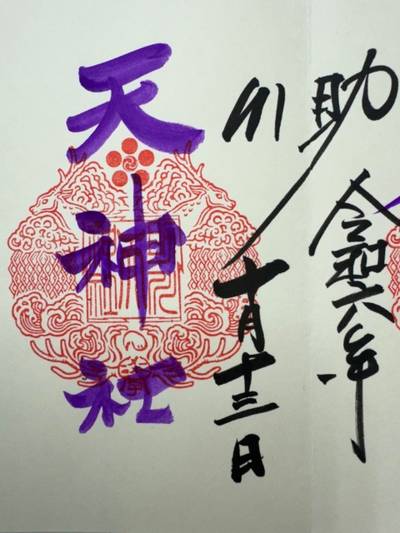 助
令和六年
川
十月十三日
天神社